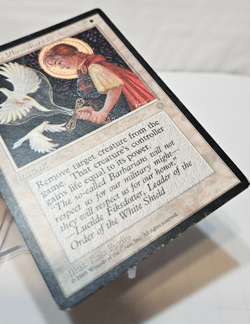 Remove target creature from the
game. That creature's controller
gains life equal to its power.
"The so-called Barbarians will not
respect us for our military might—
they will respect us for our honor."
—Lucilde Fiksdotter, Leader of the
Order of the White Shield